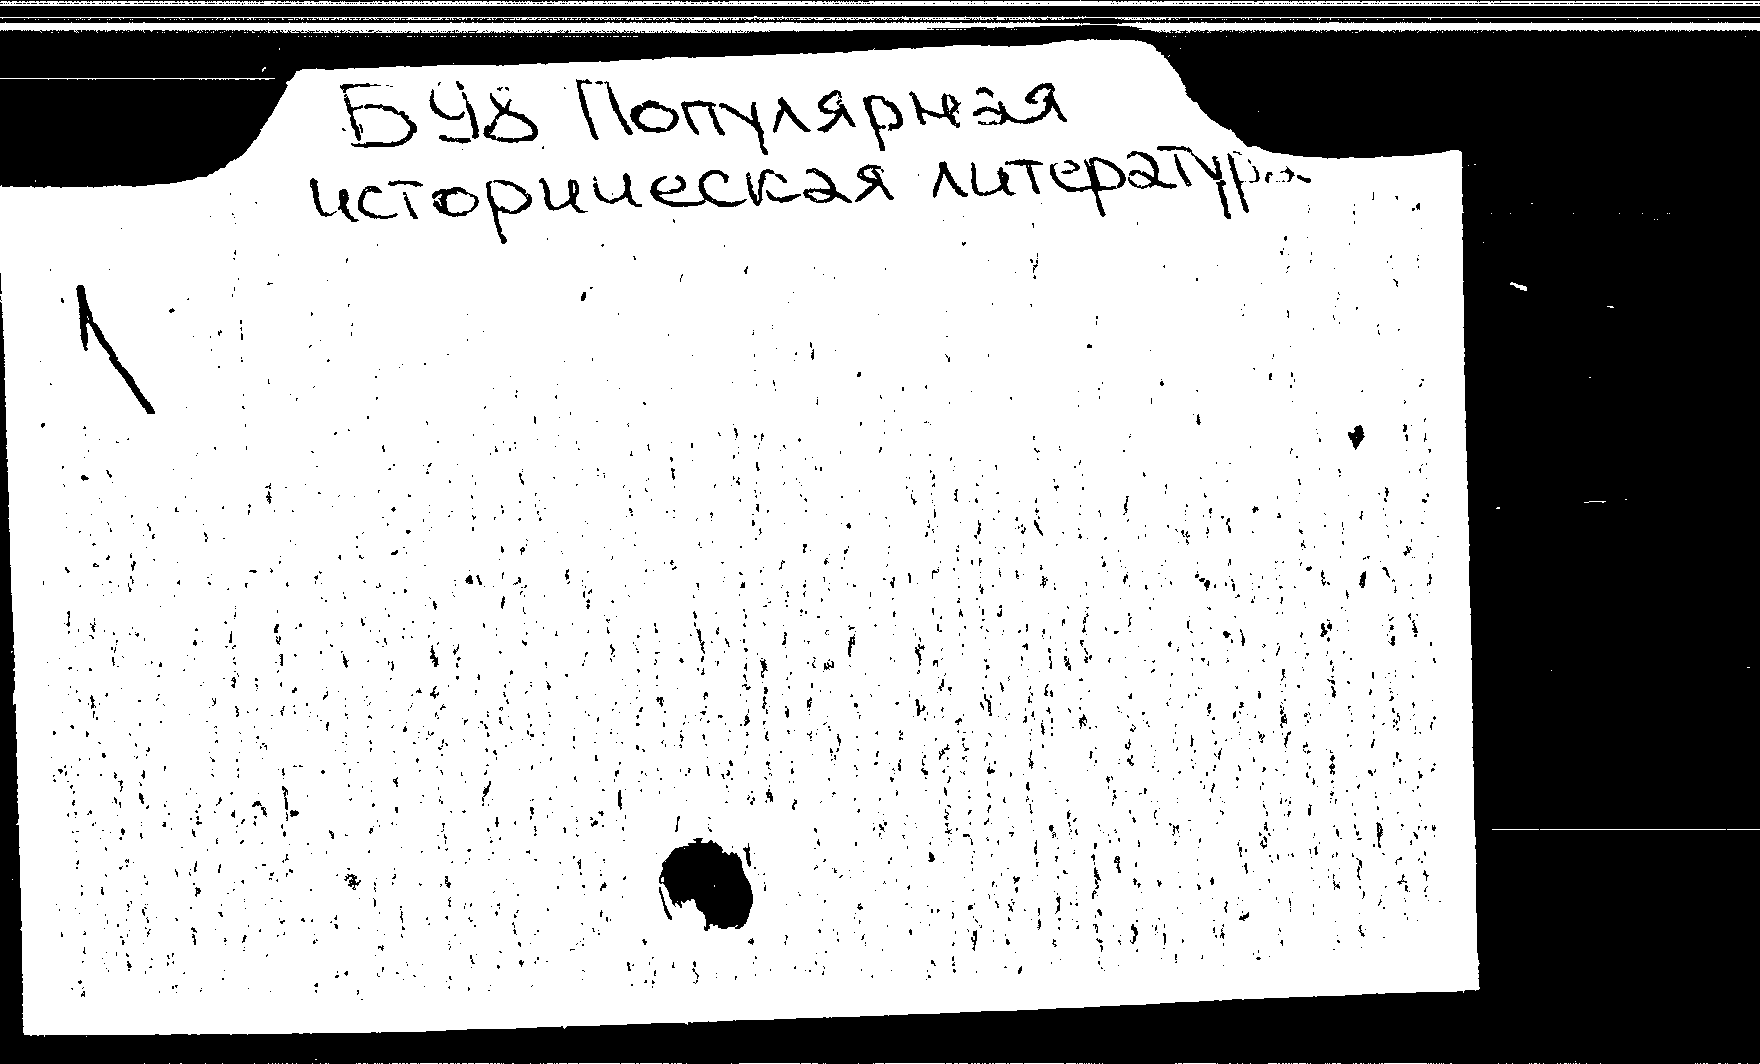 Б98 Популярная
историческая литература